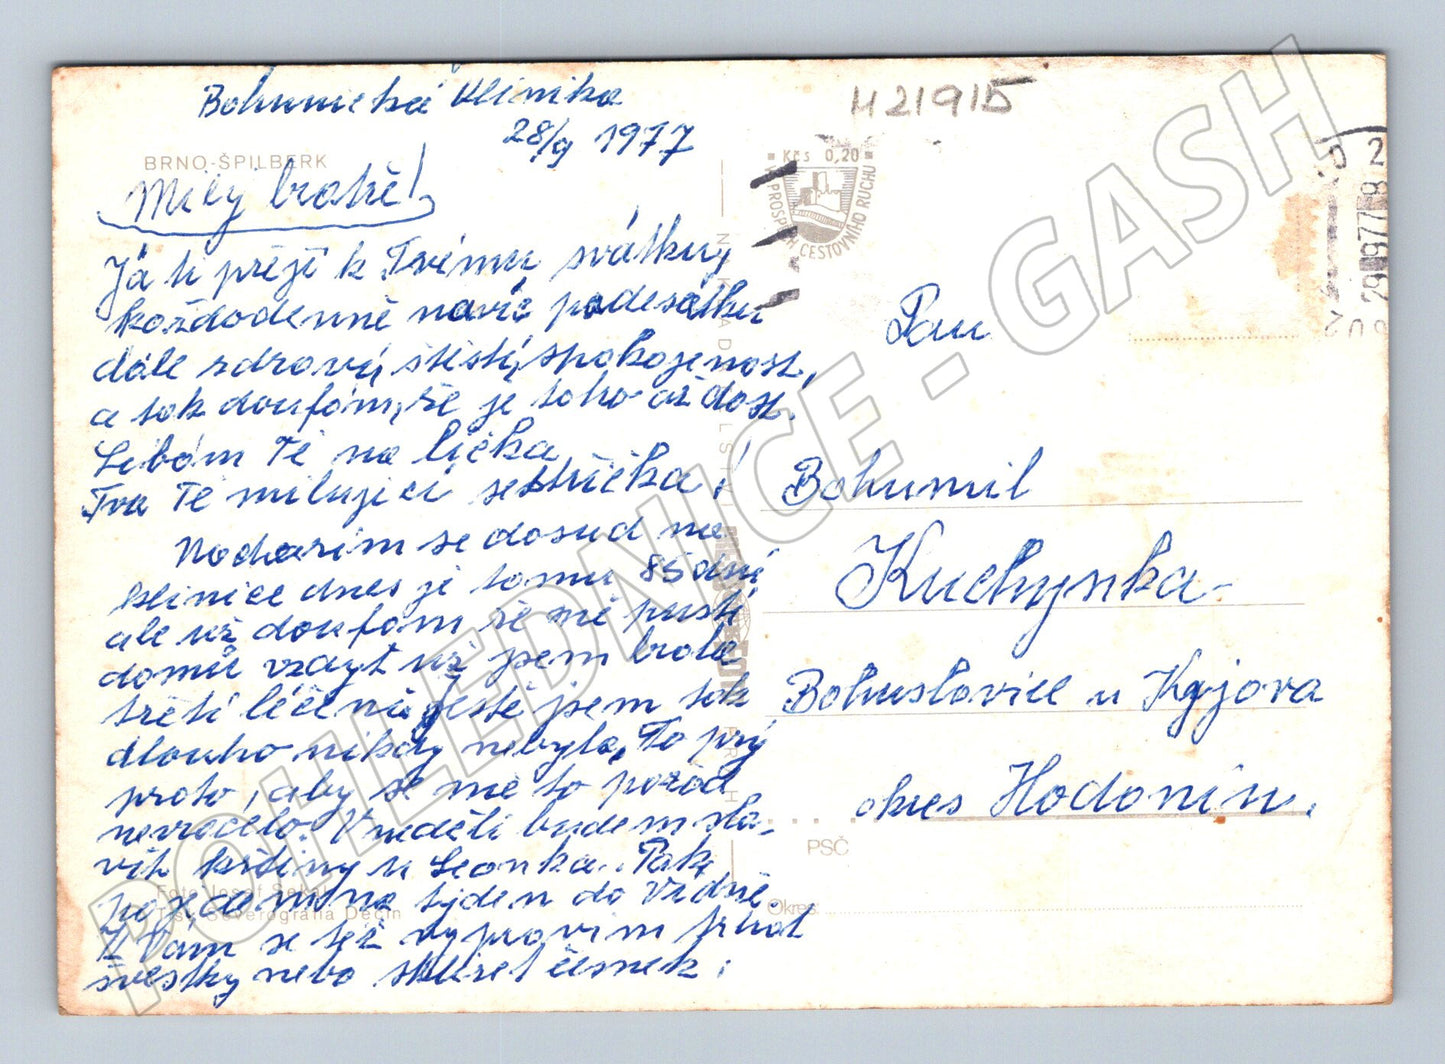 Bohunická klinika
28/9 1977
H21915
BRNO-ŠPILBERK
Milý bratře!
Já ti přeji k Tvému svátku,
každodenně navíc padesátku
dále zdraví, štěstí, spokojenost,
a tak doufám, že je toho až dost.
Líbám Tě na líčka
Tva Tě milující sestřička!
Nacházím se dosud na
klinice dnes je tomu 85 dní
ale už doufám že mě pustí
domů vždyt už jsem brala
třetí léčení, ještě jsem tak
dlouho nikdy nebyla, To prý
proto, aby se mě to pořád
nevracelo. V neděli budem sla-
vit křtiny u Leonka. Pak
pojedem na týden do
K Vám se též vypravím trhat
švestky nebo sklízet česnek.
Foto Josef Sekal
Tisk Severografia Děčín
Kčs 0,20
VE PROSPĚCH CESTOVNÍHO RUCHU
29.9.77
PRESSFOTO
PRAHA
Pan
Bohumil
Kuchynka
Bohuslavice u Kyjova
okres Hodonín.
PSČ
Okres:
POHLEDNICE - GASH